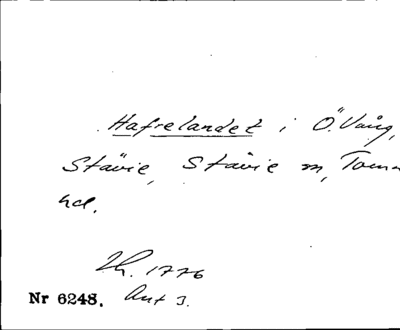 Hafrelandet i Ö. Vång,
Stävie, Stävie sn, Torna
hd.
Lh. 1776
Nr 6248. Akt 3.